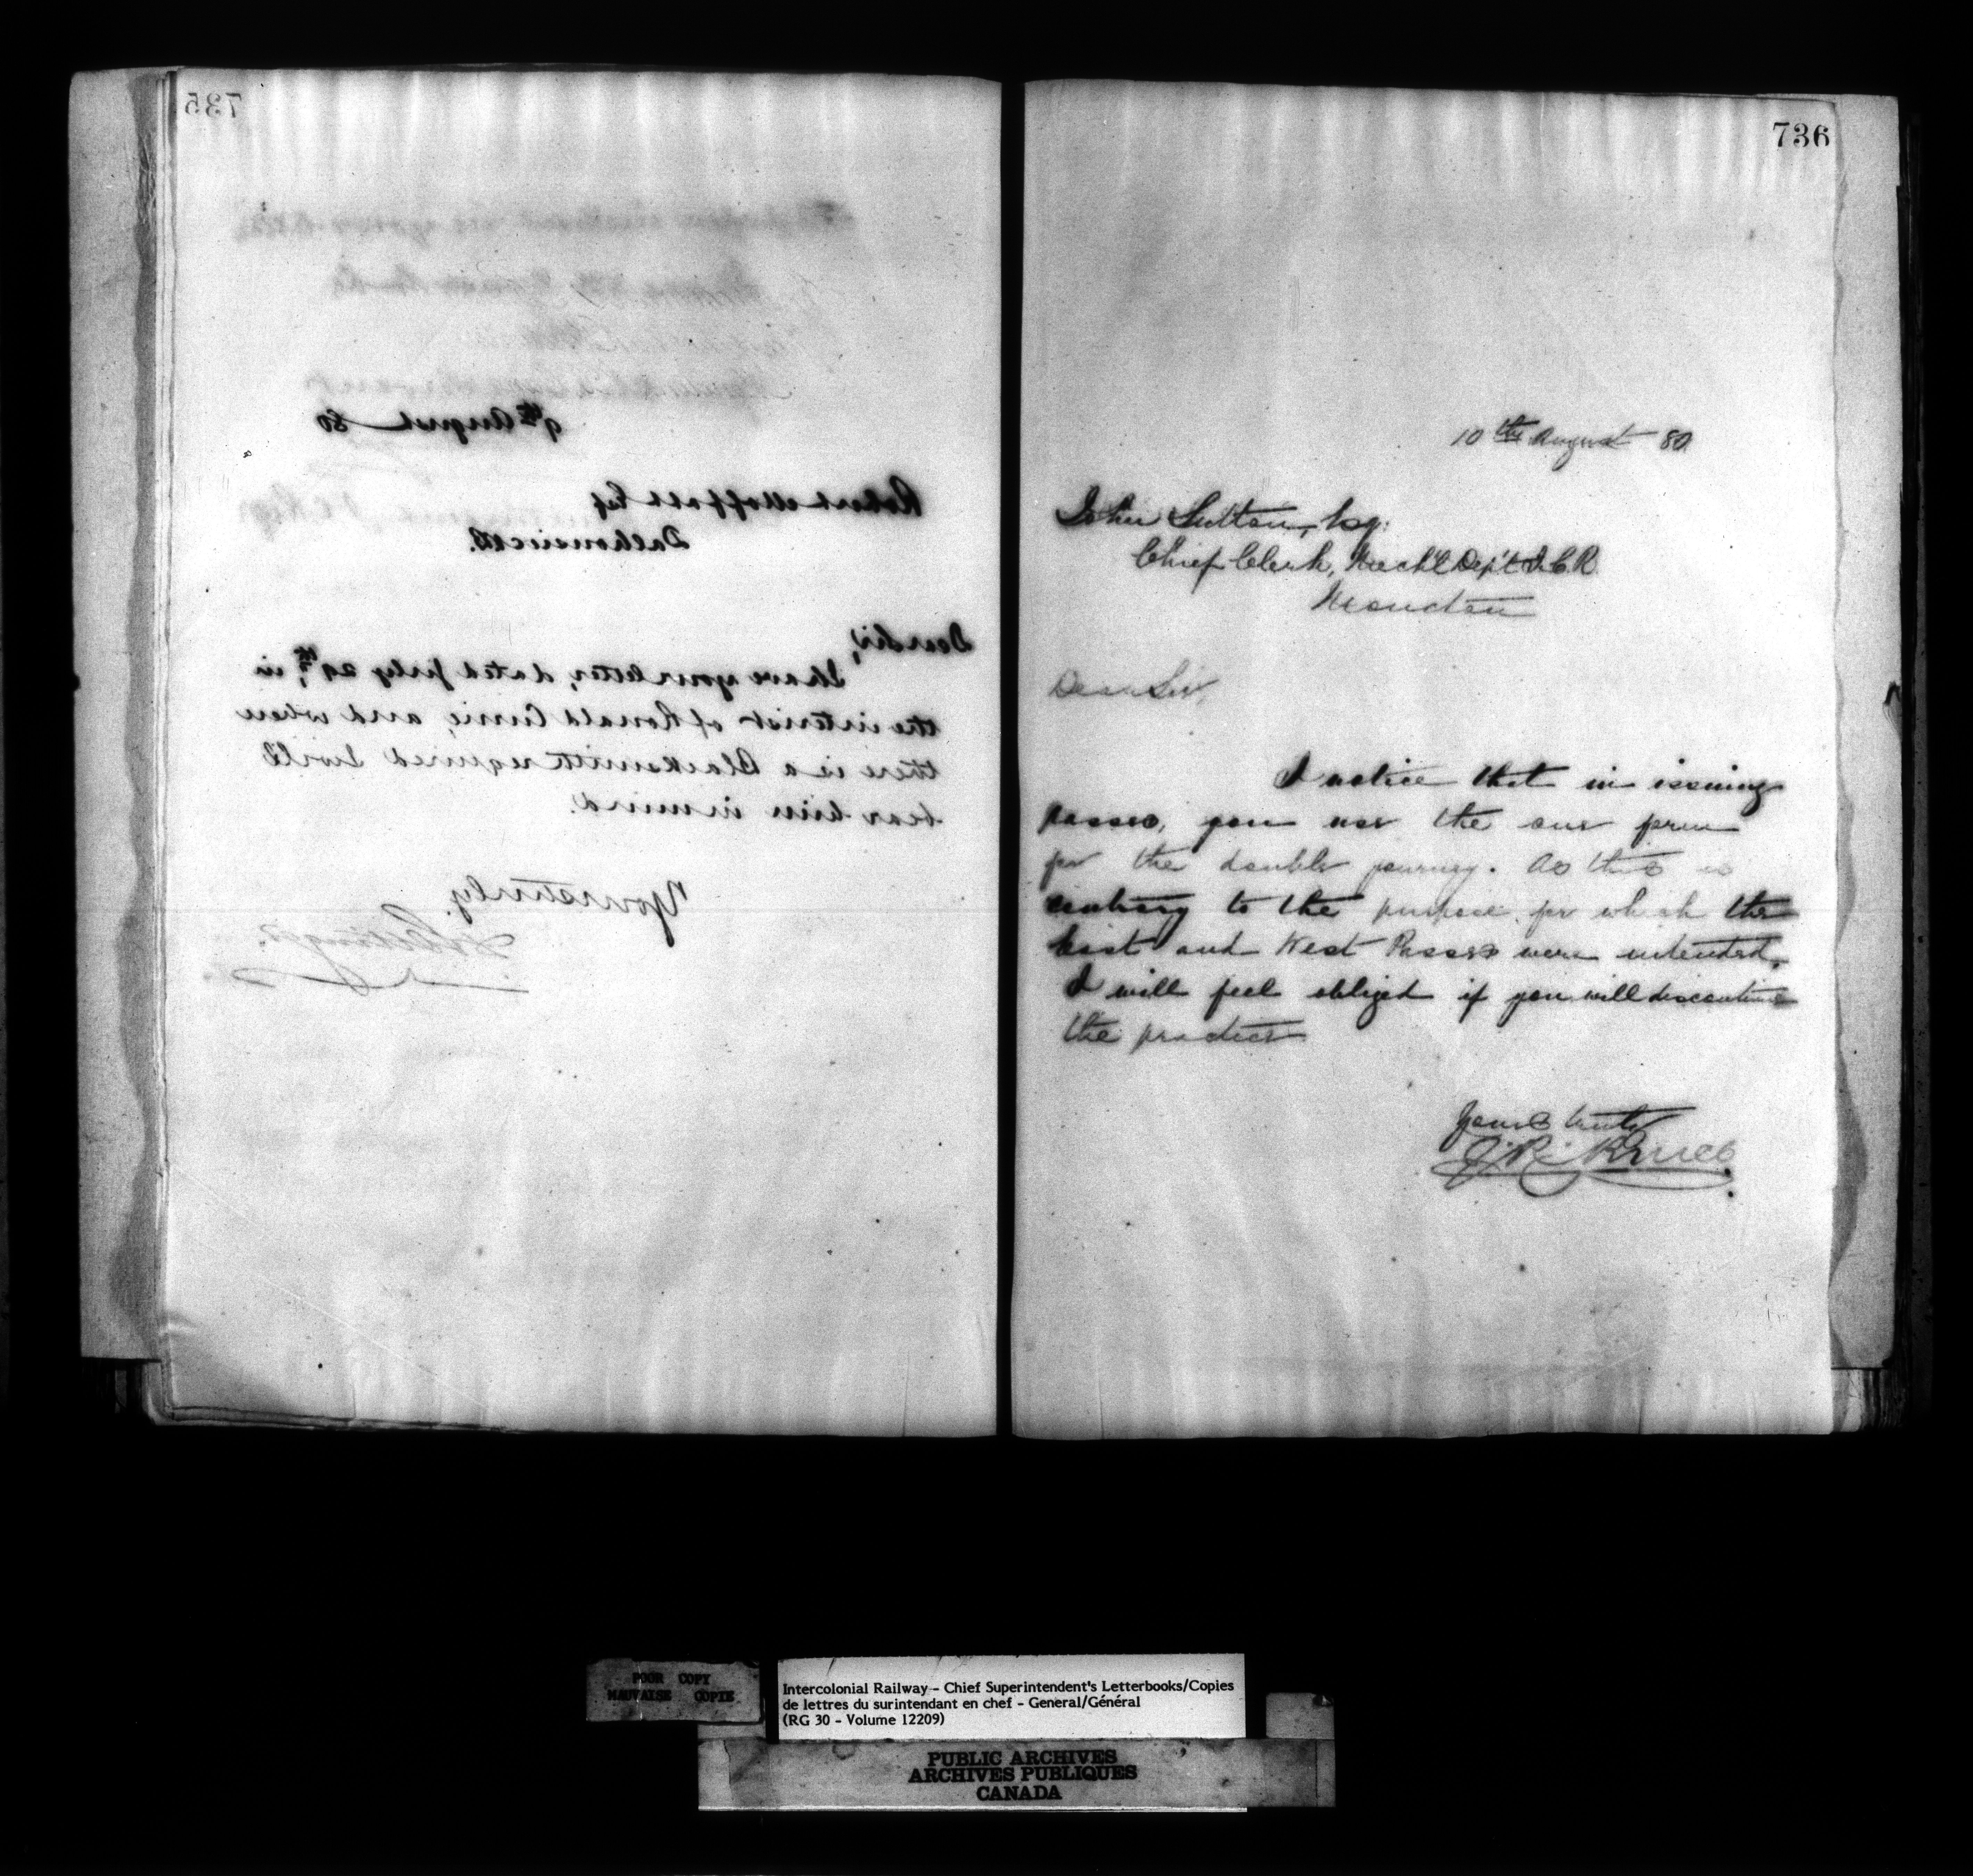 735
9th August 80
Robert Moffatt Esq
Dalhousie N.B.
Dear Sir,
I have your letter, dated July 29th, in
the interest of Ronald Currie, and when
there is a Blacksmith required I will
bear him in mind.
Yours truly,
736
10th August 80
John Sutton, Esq:
Chief Clerk, Mech'l Dep't I.C.R.
Moncton
Dear Sir,
I notice that in issuing
passes, you use the one form
for the double journey. As this is
contrary to the purpose for which the
East and West Passes were intended,
I will feel obliged if you will discontinue
the practice
Yours truly
J. R. Bruce
POOR COPY
MAUVAISE COPIE
Intercolonial Railway - Chief Superintendent's Letterbooks/Copies
de lettres du surintendant en chef - General/Général
(RG 30 - Volume 12209)
PUBLIC ARCHIVES
ARCHIVES PUBLIQUES
CANADA